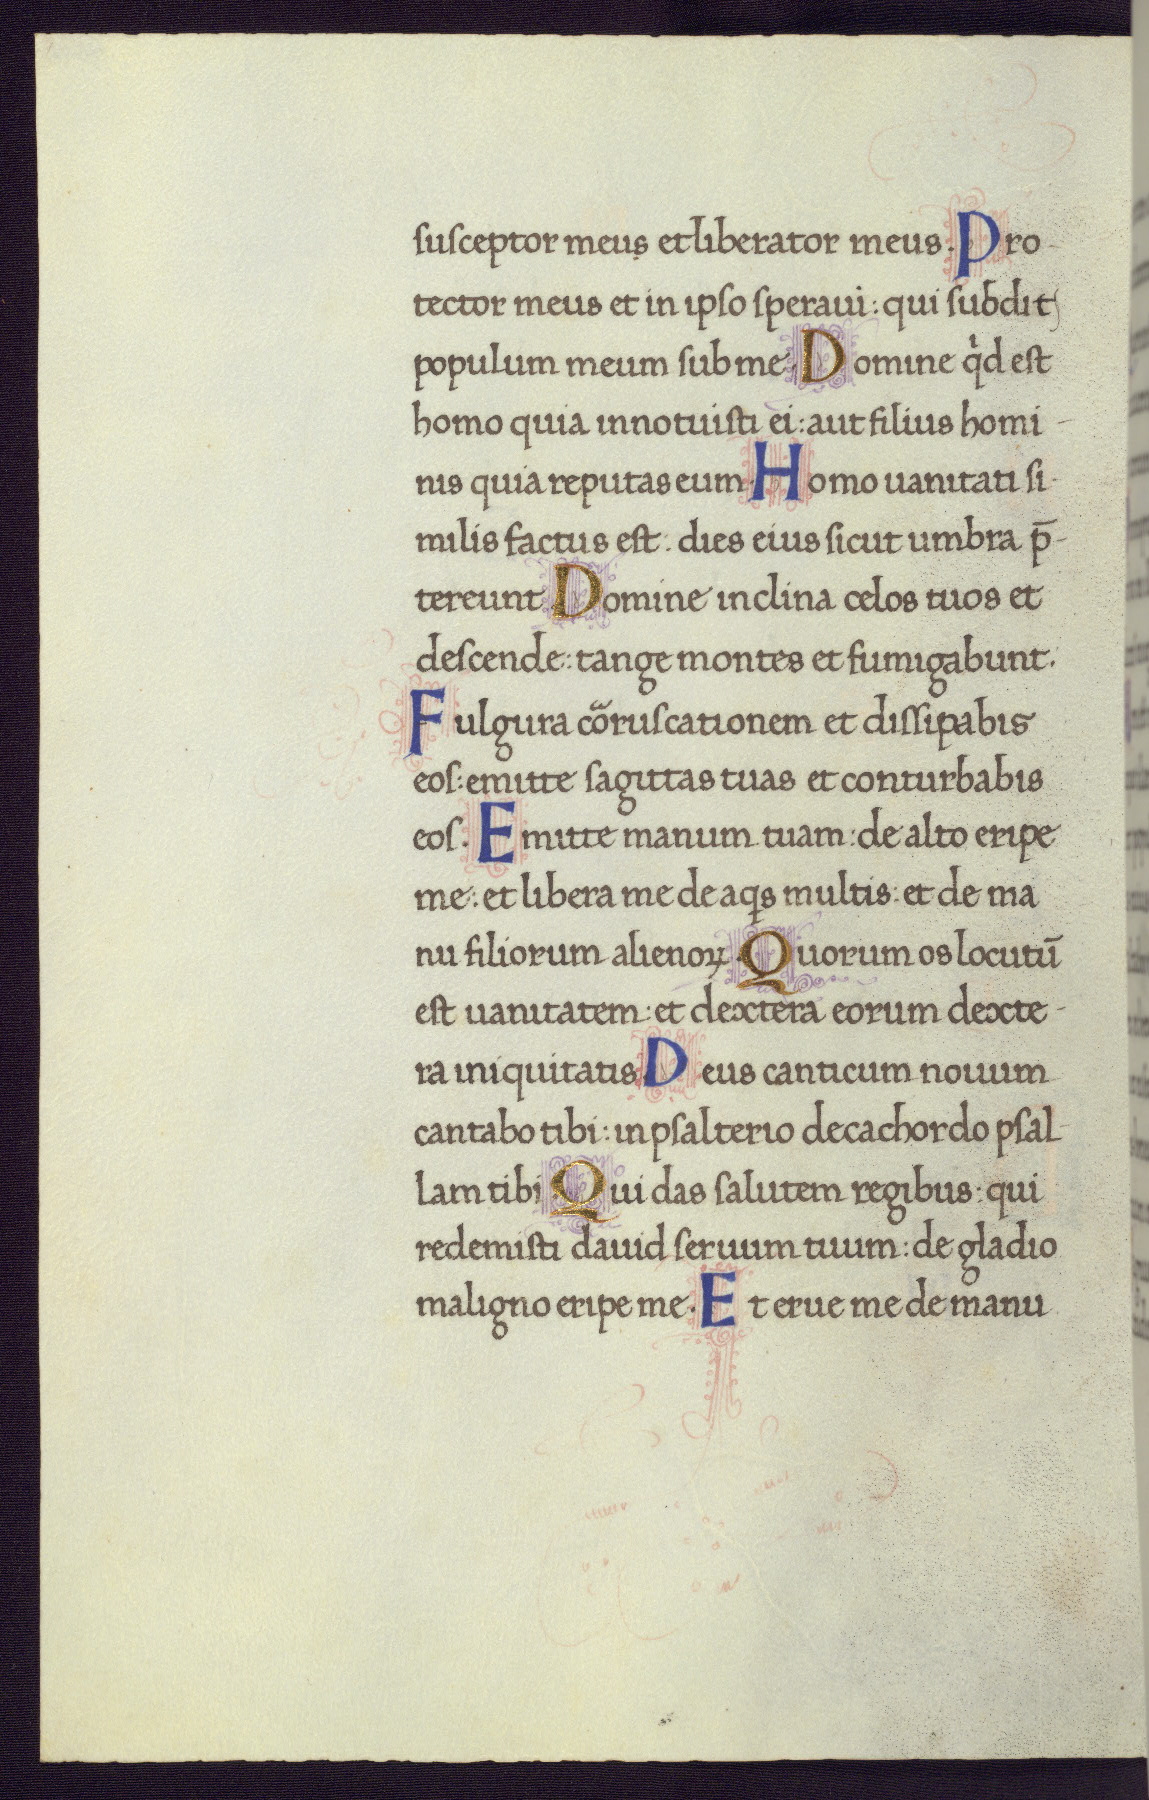 susceptor meus et liberator meus. Pro-
tector meus et in ipso speraui: qui subdit
populum meum sub me. Domine qͥd est
homo quia innotuisti ei: aut filius homi-
nis quia reputas eum. Homo uanitati si-
milis factus est: dies eius sicut umbra p̄-
tereunt. Domine inclina celos tuos et
descende: tange montes et fumigabunt.
Fulgura coruscationem et dissipabis
eos: emitte sagittas tuas et conturbabis
eos. Emitte manum tuam: de alto eripe
me: et libera me de aqͥs multis: et de ma
nu filiorum alienoꝝ. Quorum os locutū
est uanitatem: et dextera eorum dexte-
ra iniquitatis. Deus canticum nouum
cantabo tibi: in psalterio decachordo psal-
lam tibi. Qui das salutem regibus: qui
redemisti dauid seruum tuum: de gladio
maligno eripe me. Et erue me de manu